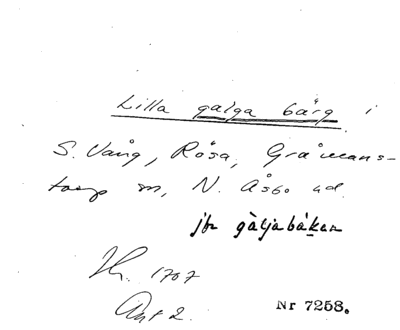 Lilla galga bärg i
S. Vång, Rösa, Gråmans-
torp sn, N. Åsbo hd.
jfr gàljabàken
Hr. 1707
Ant 2.
Nr 7258.